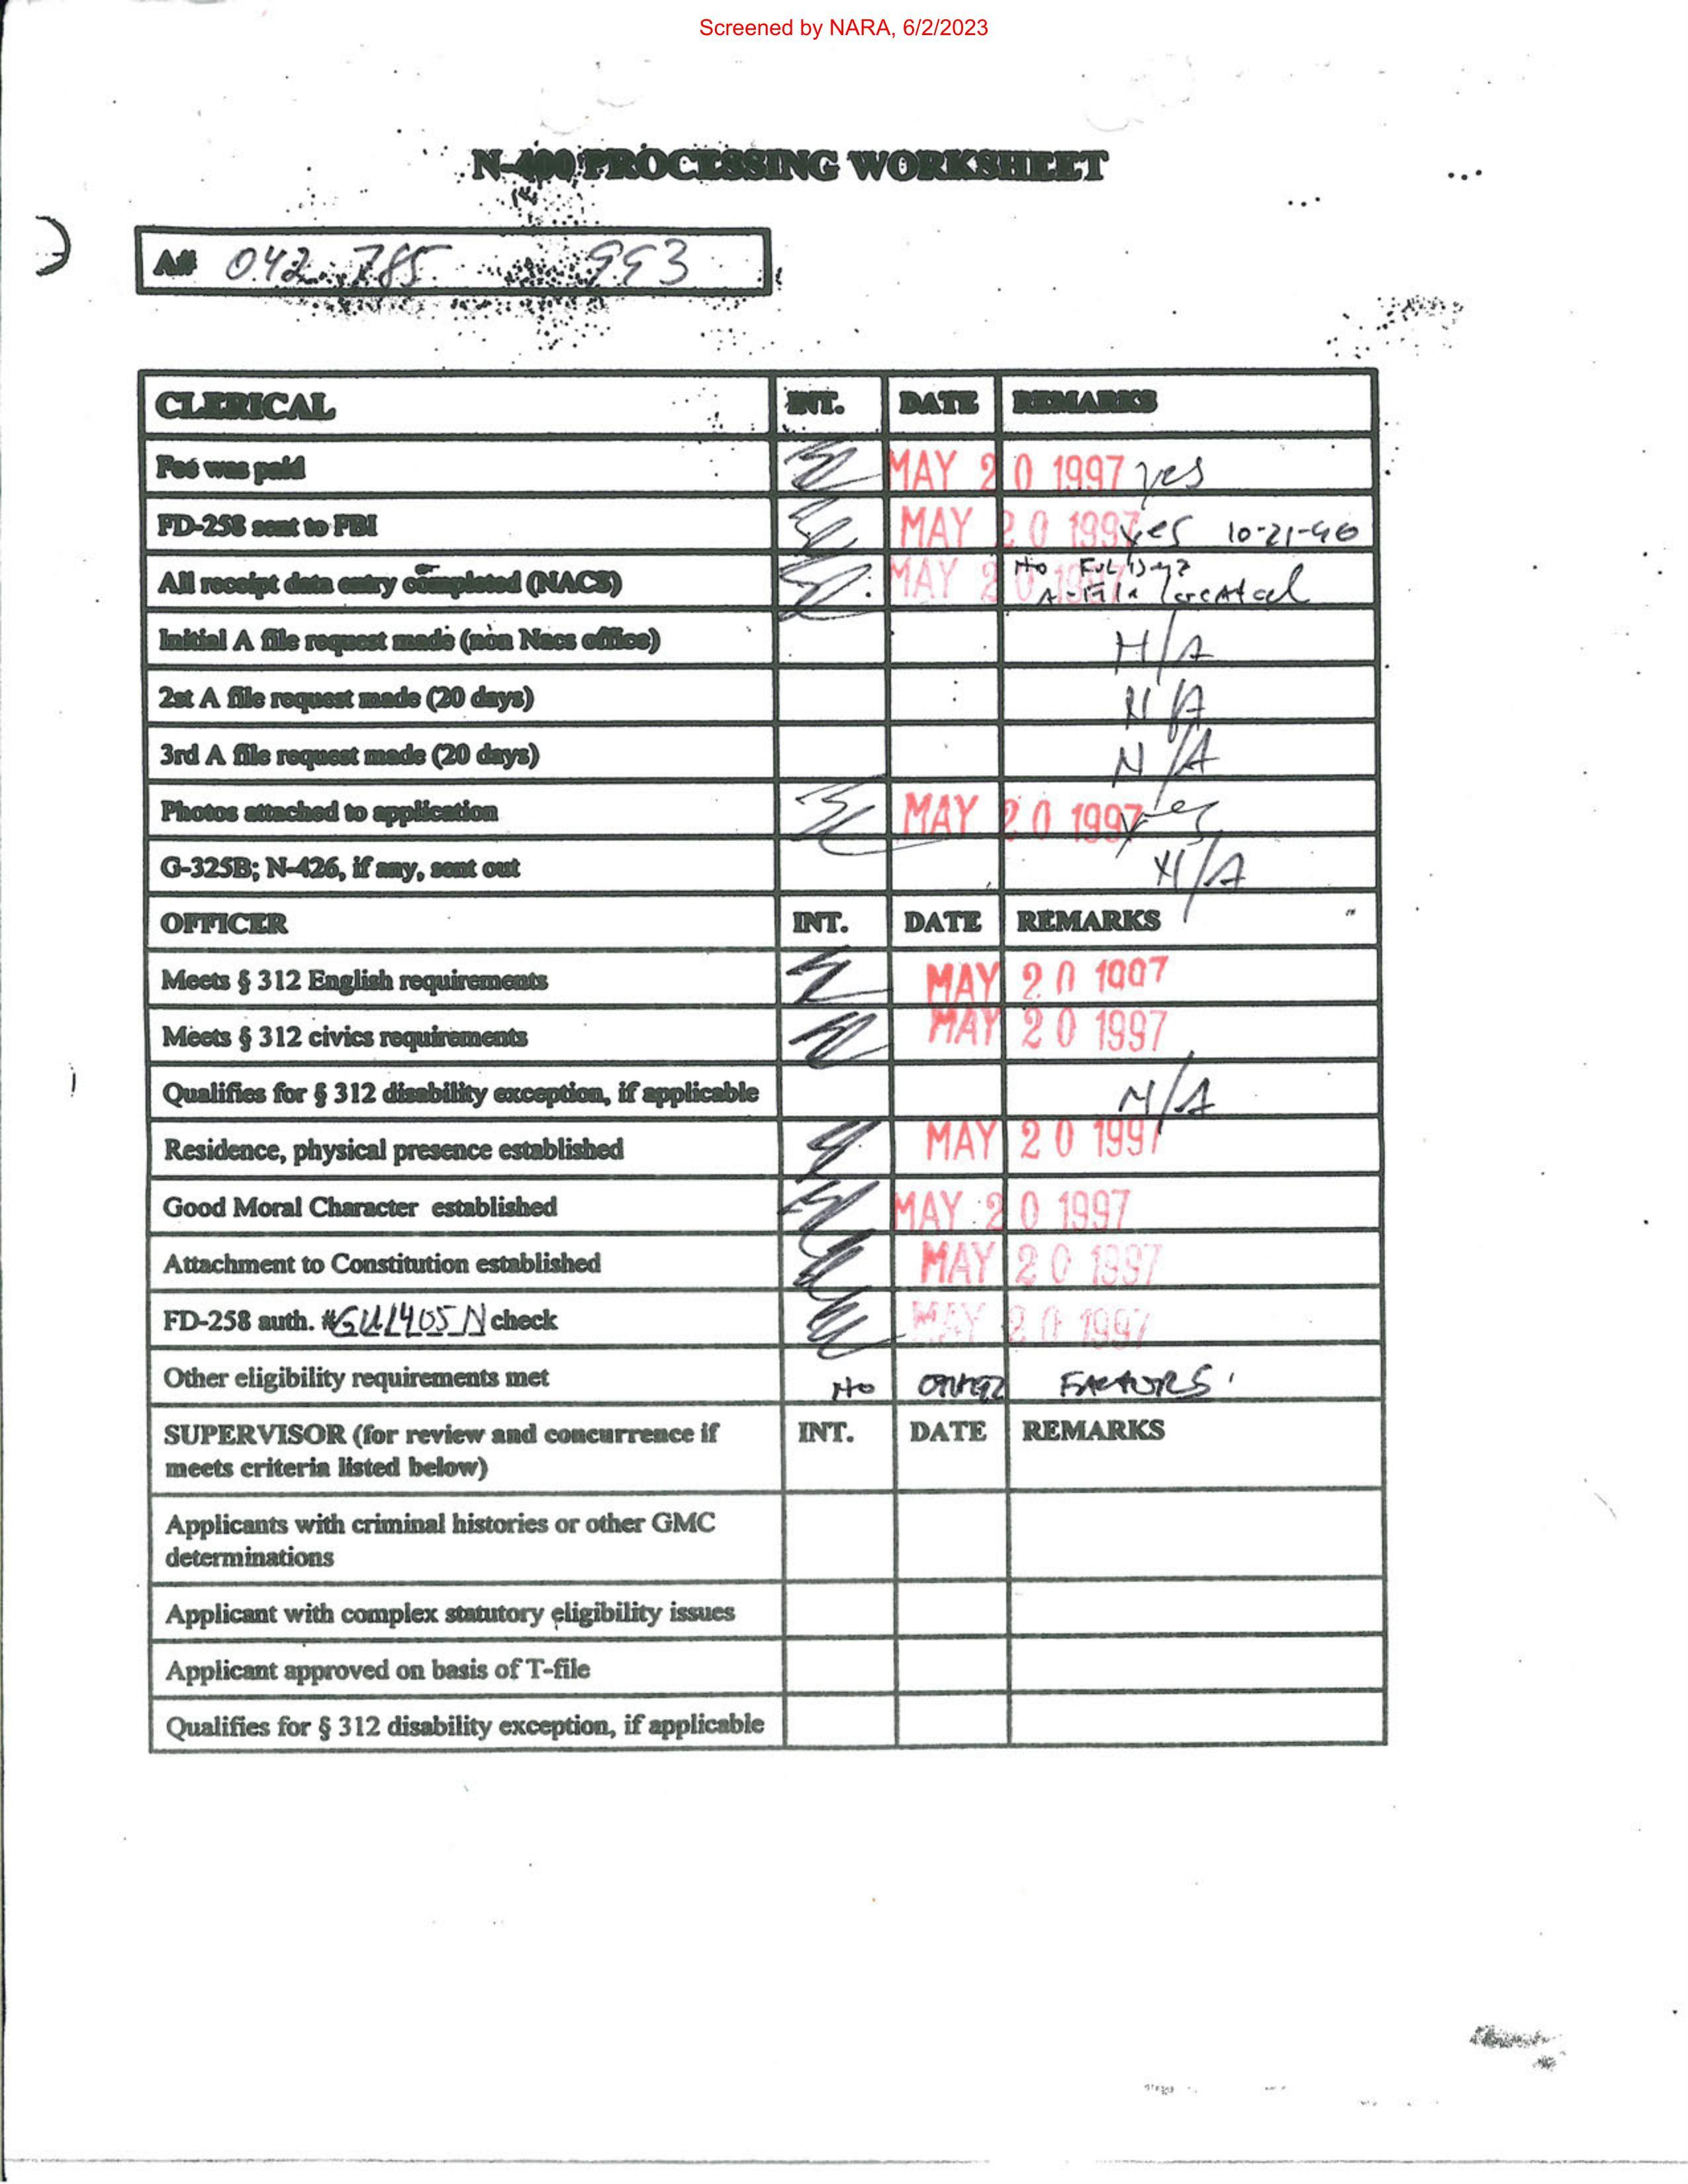 Screened by NARA, 6/2/2023
N-400 PROCESSING WORKSHEET
A# 042 785 993
CLERICAL INT. DATE REMARKS
Fee was paid MAY 20 1997 yes
FD-258 sent to FBI MAY 20 1997 yes 10-21-96
All receipt data entry completed (NACS) MAY 20 1997 No
A-File
Initial A file request made (non Nacs office) N/A
2st A file request made (20 days) N/A
3rd A file request made (20 days) N/A
Photos attached to application MAY 20 1997 Yes
G-325B; N-426, if any, sent out N/A
OFFICER INT. DATE REMARKS
Meets § 312 English requirements MAY 20 1997
Meets § 312 civics requirements MAY 20 1997
Qualifies for § 312 disability exception, if applicable N/A
Residence, physical presence established MAY 20 1997
Good Moral Character established MAY 20 1997
Attachment to Constitution established MAY 20 1997
FD-258 auth. # check MAY 20 1997
Other eligibility requirements met No OTHER FACTORS.
SUPERVISOR (for review and concurrence if INT. DATE REMARKS
meets criteria listed below)
Applicants with criminal histories or other GMC
determinations
Applicant with complex statutory eligibility issues
Applicant approved on basis of T-file
Qualifies for § 312 disability exception, if applicable